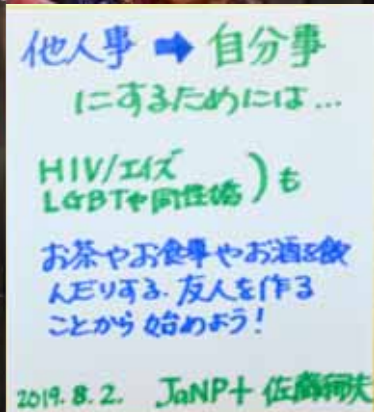 他人事 ➡ 自分事
にするためには…
HIV/エイズ
LGBTや同性婚 ) も
お茶やお食事やお酒を飲
んだりする、友人を作る
ことから始めよう!
2019.8.2. JaNP+ 佐藤